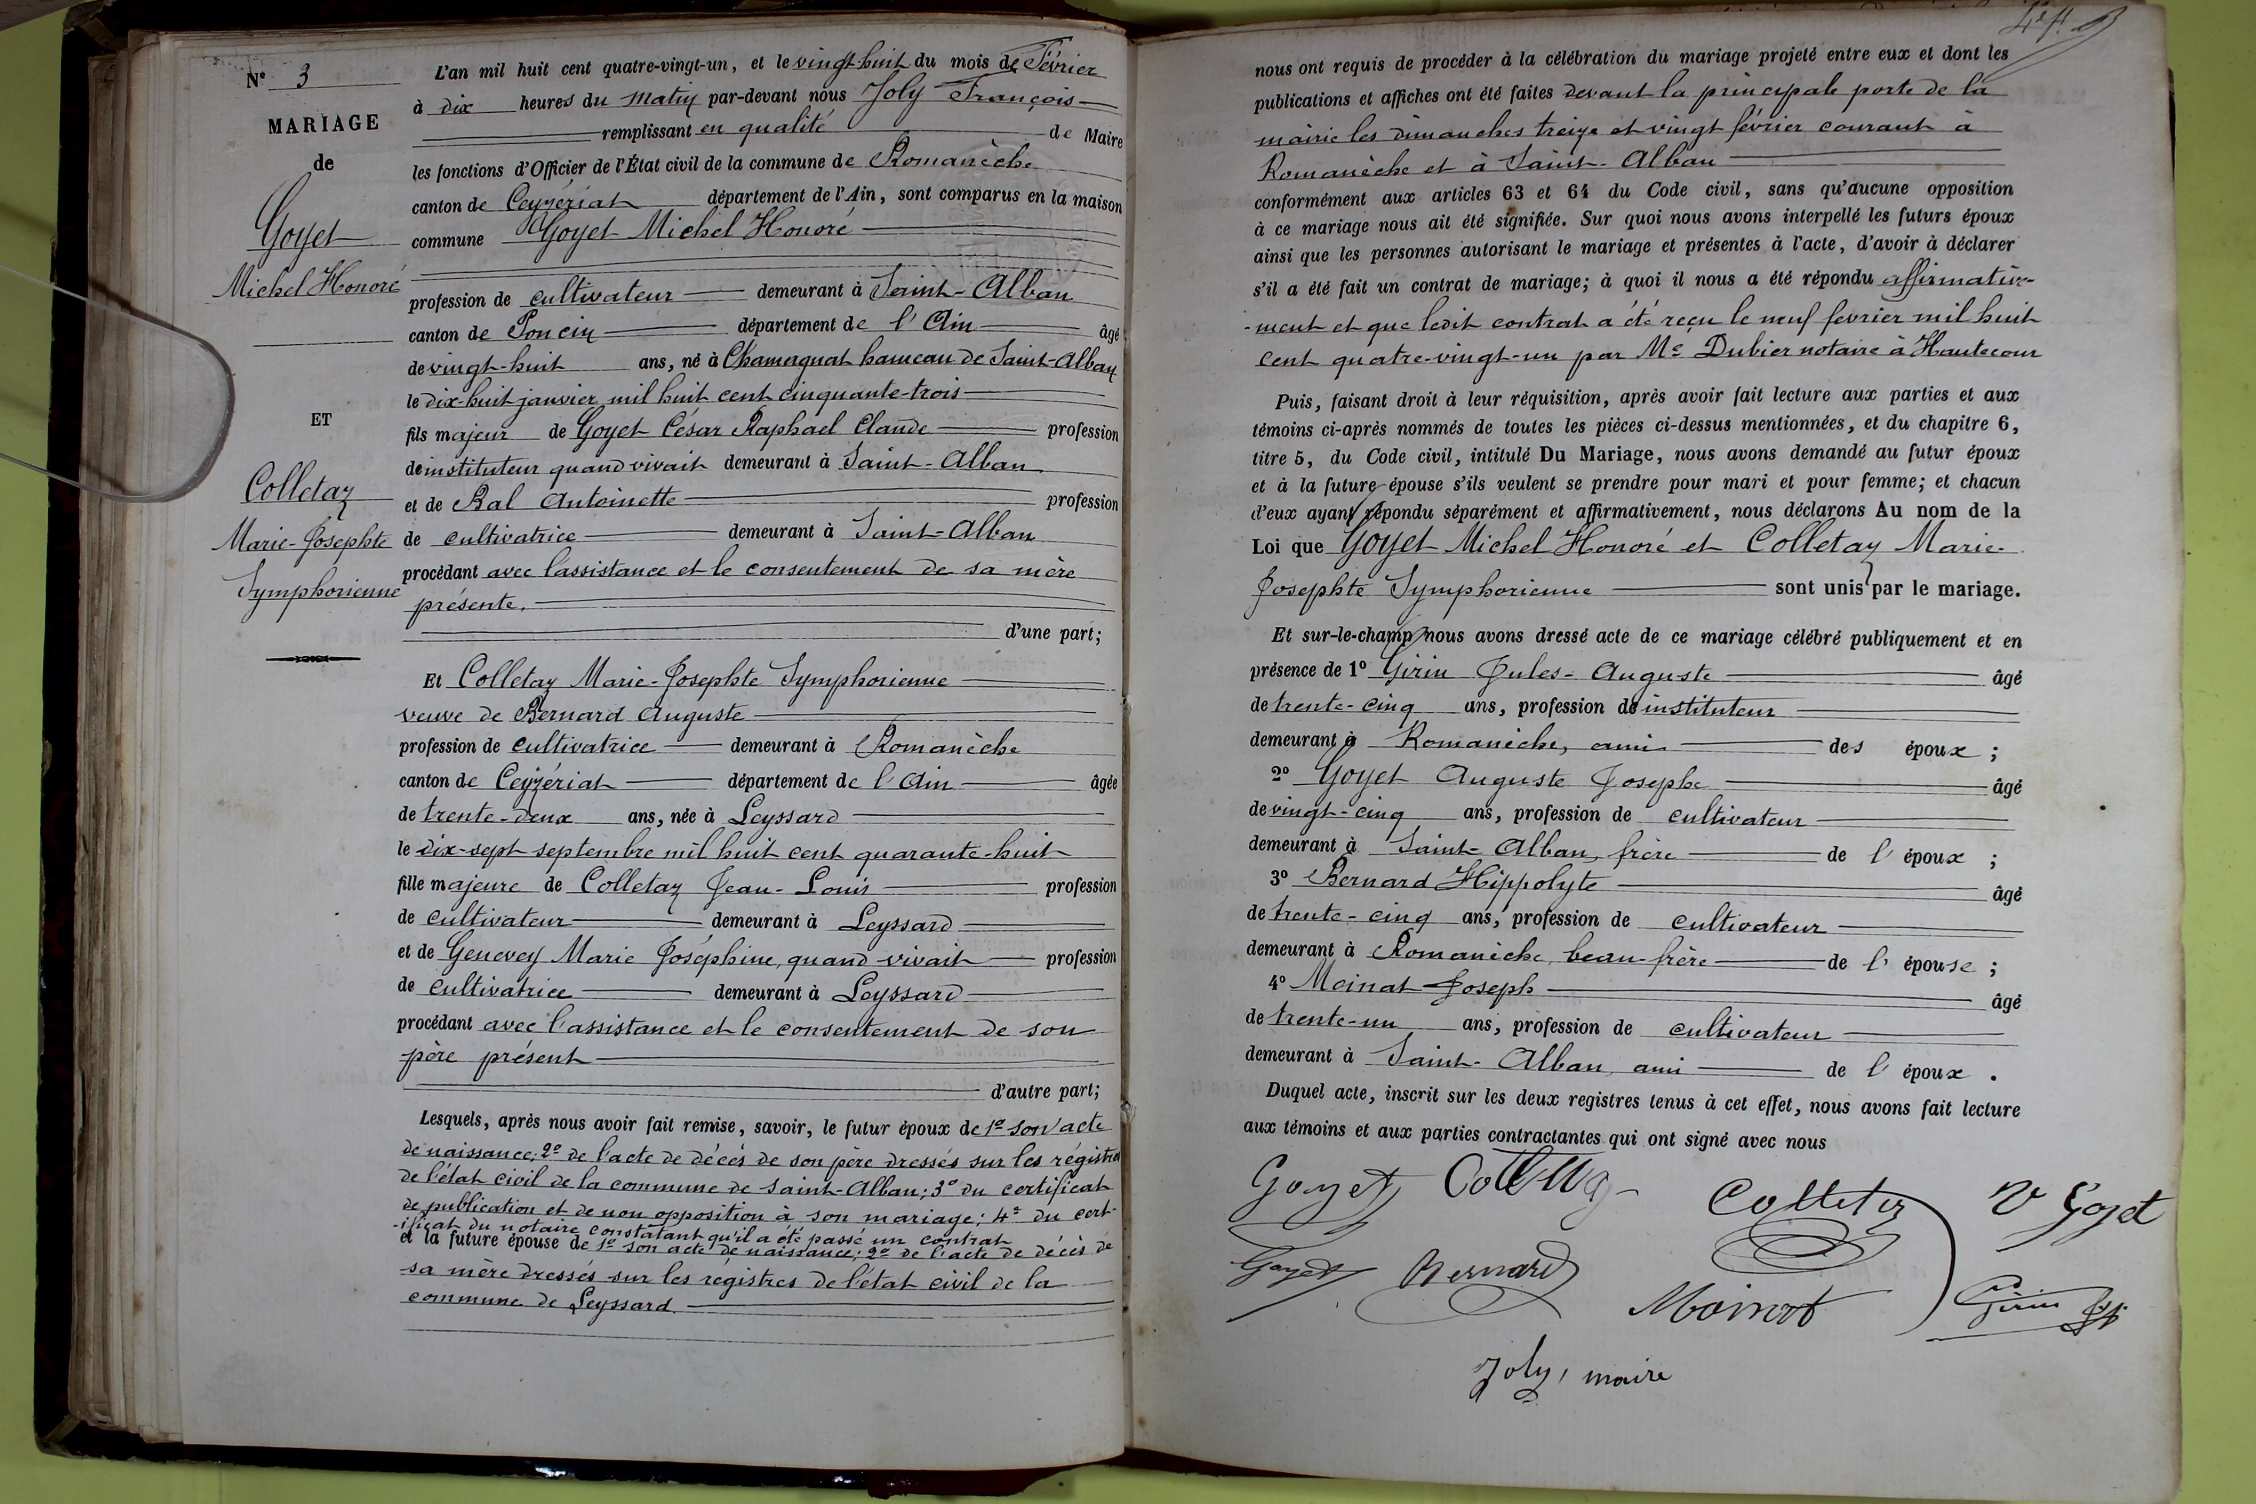 N° 3
MARIAGE
de
Goyet
Michel Honoré
ET
Colletaz
Marie-Josephte
Symphorienne
L'an mil huit cent quatre-vingt-un, et le vingt-huit du mois de Février
à dix heures du matin par-devant nous Joly François
remplissant en qualité de Maire
les fonctions d'Officier de l'État civil de la commune de Romanèche
canton de Ceyzériat département de l'Ain, sont comparus en la maison
commune Goyet Michel Honoré
profession de cultivateur demeurant à Saint-Alban
canton de Poncin département de l'Ain âgé
de vingt-huit ans, né à Chamagnat hameau de Saint-Alban
le dix-huit janvier mil huit cent cinquante-trois
fils majeur de Goyet César Raphael Claude profession
de instituteur quand vivait demeurant à Saint-Alban
et de Bal Antoinette profession
de cultivatrice demeurant à Saint-Alban
procédant avec l'assistance et le consentement de sa mère
présente.
d'une part;
Et Colletaz Marie-Josephte Symphorienne
veuve de Bernard Auguste
profession de cultivatrice demeurant à Romanèche
canton de Ceyzériat département de l'Ain âgée
de trente-deux ans, née à Leyssard
le dix-sept septembre mil huit cent quarante-huit
fille majeure de Colletaz Jean-Louis profession
de cultivateur demeurant à Leyssard
et de Genevey Marie Joséphine, quand vivait profession
de cultivatrice demeurant à Leyssard
procédant avec l'assistance et le consentement de son
père présent
d'autre part;
Lesquels, après nous avoir fait remise, savoir, le futur époux de 1° son acte
de naissance; 2° de l'acte de décés de son père dressés sur les régistres
de l'état civil de la commune de Saint-Alban; 3° du certificat
de publication et de non opposition à son mariage; 4° du cert-
-ificat du notaire constatant qu'il a été passé un contrat
et la future épouse de 1° son acte de naissance; 2° de l'acte de décès de
sa mère dressés sur les régistres de l'état civil de la
commune de Leyssard.
nous ont requis de procéder à la célébration du mariage projeté entre eux et dont les
publications et affiches ont été faites devant la principale porte de la
mairie les dimanches treize et vingt février courant à
Romanèche et à Saint-Alban
conformément aux articles 63 et 64 du Code civil, sans qu'aucune opposition
à ce mariage nous ait été signifiée. Sur quoi nous avons interpellé les futurs époux
ainsi que les personnes autorisant le mariage et présentes à l'acte, d'avoir à déclarer
s'il a été fait un contrat de mariage; à quoi il nous a été répondu affirmative-
-ment et que ledit contrat a été reçu le neuf fevrier mil huit
cent quatre-vingt-un par Me Dubier notaire à Hautecour
Puis, faisant droit à leur réquisition, après avoir fait lecture aux parties et aux
témoins ci-après nommés de toutes les pièces ci-dessus mentionnées, et du chapitre 6,
titre 5, du Code civil, intitulé Du Mariage, nous avons demandé au futur époux
et à la future épouse s'ils veulent se prendre pour mari et pour femme; et chacun
d'eux ayant répondu séparément et affirmativement, nous déclarons Au nom de la
Loi que Goyet Michel Honoré et Colletaz Marie-
Josephte Symphorienne sont unis par le mariage.
Et sur-le-champ nous avons dressé acte de ce mariage célébré publiquement et en
présence de 1° Girin Jules-Auguste âgé
de trente-cinq ans, profession de instituteur
demeurant à Romanèche, ami des époux;
2° Goyet Auguste Josephe âgé
de vingt-cinq ans, profession de cultivateur
demeurant à Saint-Alban, frère de l'époux;
3° Bernard Hippolyte âgé
de trente-cinq ans, profession de cultivateur
demeurant à Romanèche, beau-frère de l'épouse;
4° Moinat Joseph âgé
de trente-un ans, profession de cultivateur
demeurant à Saint-Alban, ami de l'époux.
Duquel acte, inscrit sur les deux registres tenus à cet effet, nous avons fait lecture
aux témoins et aux parties contractantes qui ont signé avec nous
Goyet Colletaz Colletaz V Goyet
Goyet Bernard Moinat Girin
Joly, maire